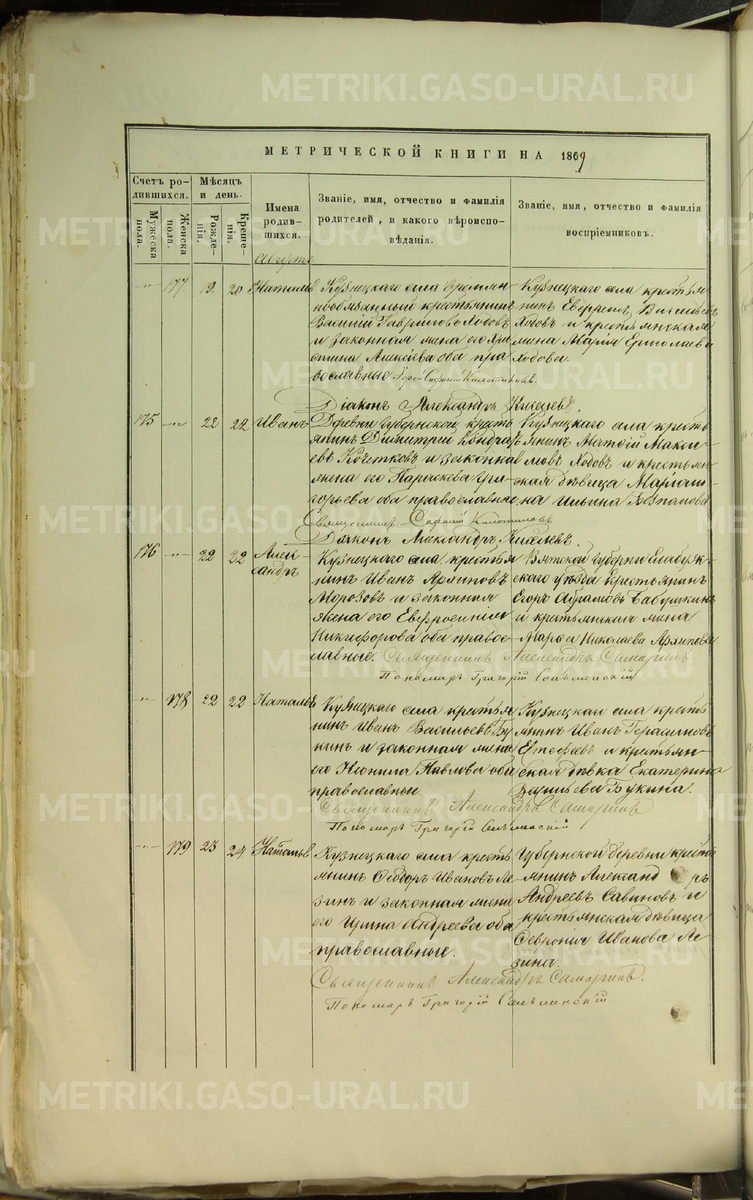 МЕТРИЧЕСКОЙ КНИГИ НА 1869
Счетъ ро-
дившихся.
Мужеска
пола.
Женска
пола.
Мѣсяцъ
и день.
Рожде-
нія.
Креще-
нія.
Имена
родив-
шихся.
Званіе, имя, отчество и фамилія
родителей, и какого вѣроиспо-
вѣданія.
Званіе, имя, отчество и фамилія
воспріемниковъ.
Августъ
177 19 20 Наталья
Кузнецкаго села временно
обязанный крестьянинъ
Василій Гавриловъ Ходовъ
и законная жена его
Алексіева оба пра
вославные
Кузнецкаго села крестья
нинъ Василіевъ
Ходовъ и крестьянская
жена Марія Ермолаева
Ходова.
Діаконъ Александръ Киселевъ.
175 22 22 Иванъ
Деревни Губернской кресть
янинъ Димитрій Кондрат
евъ Кочетковъ и законная
жена его Параскева Гри-
горьева оба православные
Кузнецкаго села кресть
янинъ Матөій
Ходовъ и крестьян
ская дѣвица Мариан
на Ильина
Священникъ Сергий
Діаконъ Александръ Киселевъ.
176 22 22 Алек-
сандръ
Кузнецкаго села крестья
нинъ Иванъ Архиповъ
Морозовъ и законная
жена его Евфросинія
Никифорова оба право-
славные.
Вятской Губерніи Елабуж-
скаго уѣзда крестьянинъ
Егоръ Абрамовъ Бабушкинъ
и крестьянская жена
Марѳа Николаева Архипова
Священникъ Александръ
Пономарь Григорій
178 22 22 Наталья
Кузнецкаго села крестья
нинъ Иванъ Васильевъ Бу
кинъ и законная жена
его Неонила Павлова оба
православные
Кузнецкаго села кресть
янинъ Иванъ Герасимовъ
и крестьян-
ская дѣвка Екатерина
Васильева Букина.
Священникъ Александръ
Пономарь Григорій
179 23 24 Наталья
Кузнецкаго села кресть
янинъ Ѳедоръ Ивановъ Ле
зинъ и законная жена
его Ирина Андреева оба
православные.
Губернской деревни кресть
янинъ Александръ
Андреевъ Савиновъ и
крестьянская дѣвица
Ѳевронія Иванова Ле-
зина.
Священникъ Александръ
Пономарь Григорій
METRIKI.GASO-URAL.RU